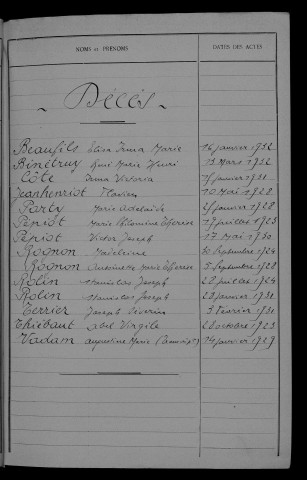 NOMS et PRÉNOMS DATES DES ACTES
Décès
Beaufils Elisa Irma Marie 16 janvier 1932
Binétruy René Marie Henri 13 Mars 1932
Côte Irma Victoria janvier 1931
Jeanhenriot Flavien 10 Mai 1928
Party Marie Adelaïde 21 janvier 1928
Pépiot Marie Philomène Thérèse 17 juillet 1923
Pépiot Victor Joseph 17 Mai 1930
Rognon Madeleine 30 Septembre 1924
Rognon Antoinette Marie Thérèse 5 Septembre 1928
Rolin Stanislas Joseph 22 juillet 1924
Rolin Stanislas Joseph 20 janvier 1931
Terrier Joseph Séverin 3 Février 1931
Thiébaut Abel Virgile 20 octobre 1923
Vadam Augustine Marie 14 janvier 1927